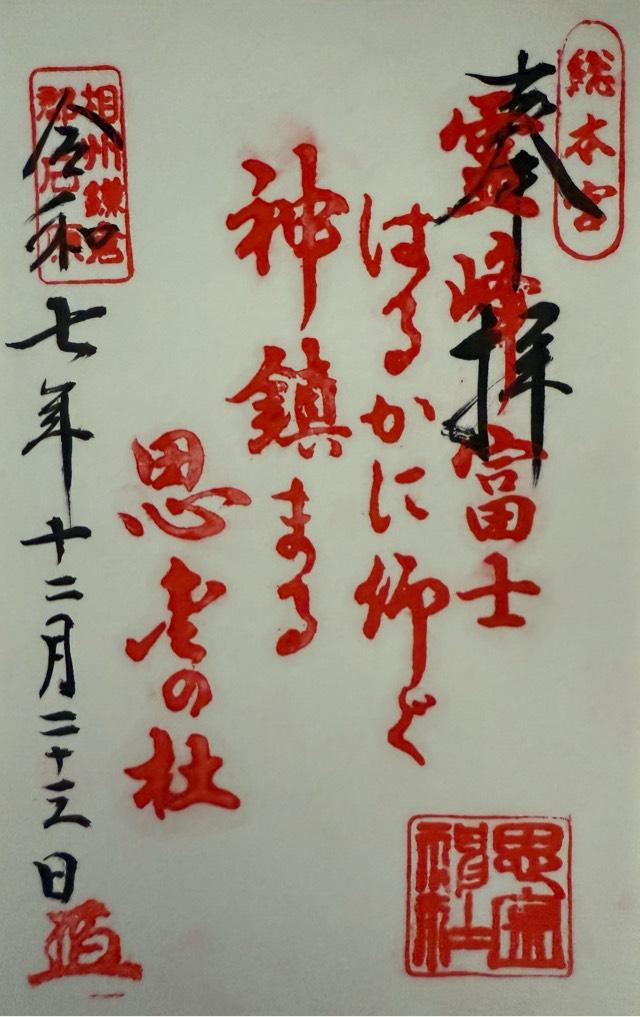 総本宮
奉拝
靈峰富士
はるかに仰
神鎮まる
思金の杜
思金神社
相州鎌倉
郡
令和七年十二月二十三日